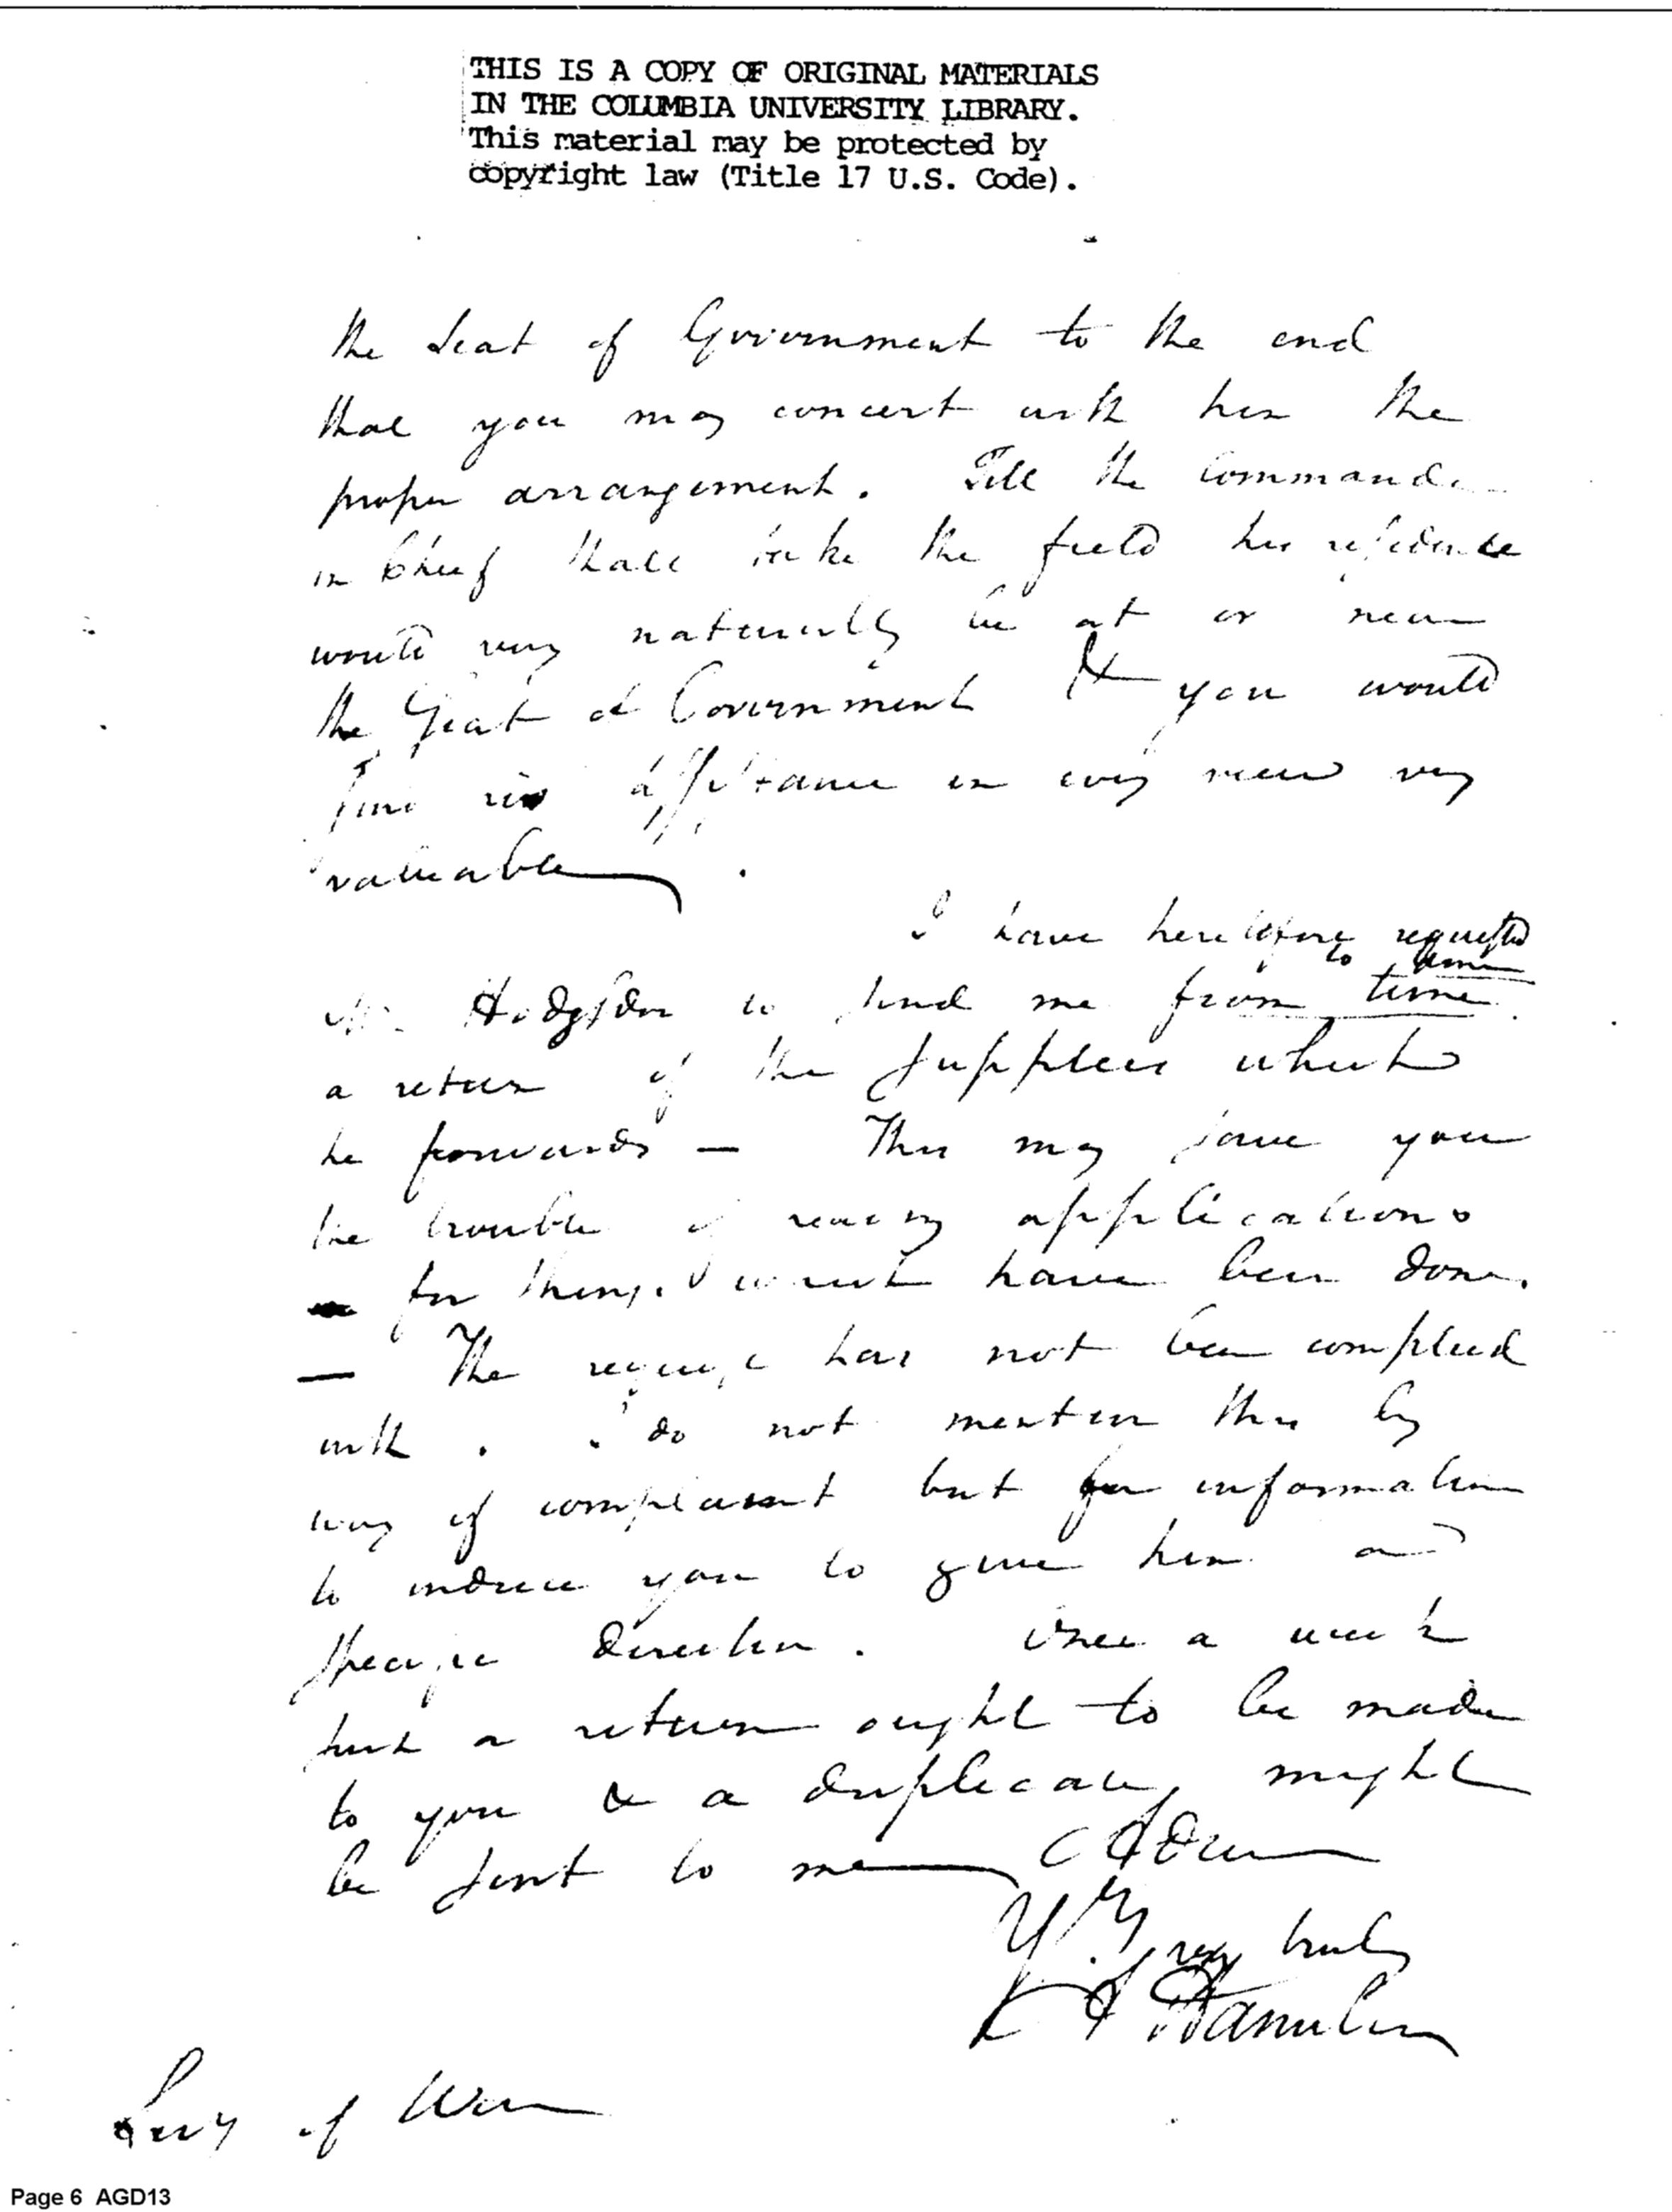 THIS IS A COPY OF ORIGINAL MATERIALS
IN THE COLUMBIA UNIVERSITY LIBRARY.
This material may be protected by
copyright law (Title 17 U.S. Code).
the Seat of Government to the end
that you may concert with him the
proper arrangement. Till the Commander
in Chief shall take the field his residence
would very naturally be at or near
the Seat of Government & you would
find his assistance in every view very
valuable.
I have heretofore requested
Mr. Hodgsdon to send me from time
to time
a return of the supplies which
he forwards — This may save you
the trouble of many applications
for things which have been done.
— The request has not been complied
with. I do not mention this by
way of complaint but for information
to induce you to give him a
specific direction. Once a week
such a return ought to be made
to you & a duplicate might
be sent to me Adieu
Yrs. very truly
A Hamilton
Secy of War
Page 6 AGD13